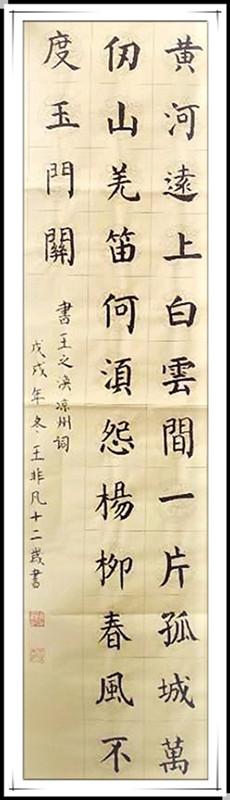 黄河遠上白雲間一片孤城萬
仞山羌笛何須怨楊柳春風不
度玉門關
書王之渙凉州詞
戊戌年冬王非凡十二歲書